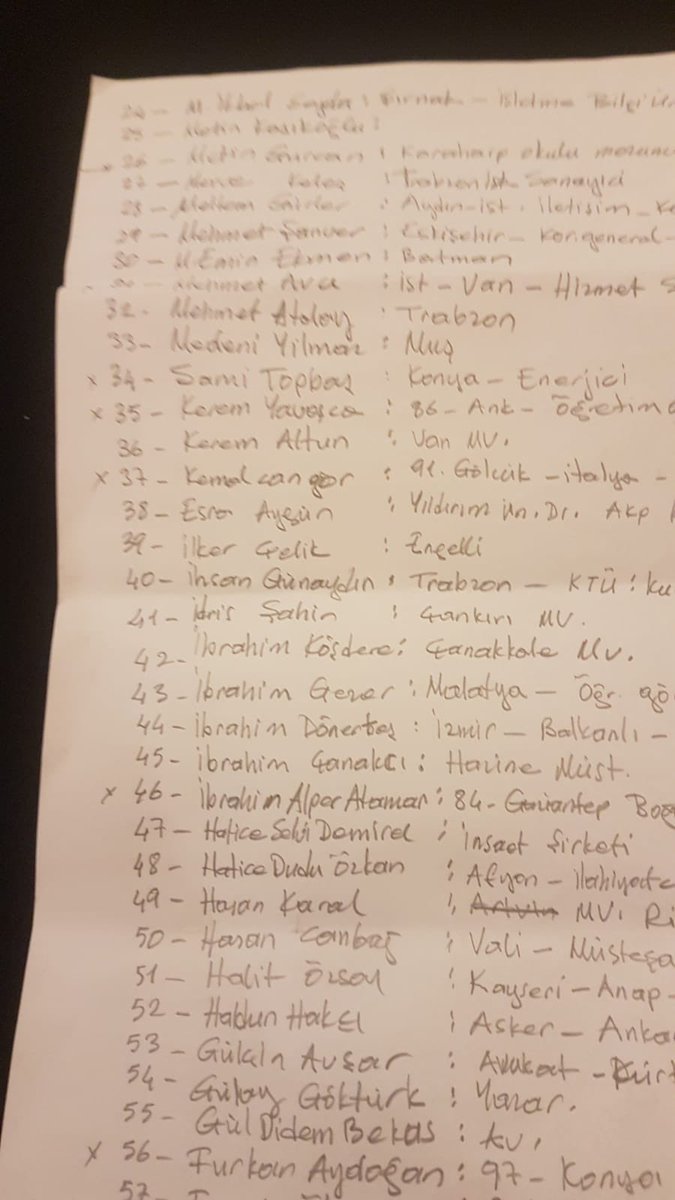 24 - M. Sayda : Şırnak - İşletme Bilgi Ün
25 - Metin
x 26 - Metin Gürcan : Karaharp okulu mezunu
27 - Merve Keleş : Trabzon İst Sanayici
28 - Meltem Gürler : Aydın - İst. İletişim -
29 - Mehmet Şanver : Eskişehir - Korgeneral -
30 - M. Emin Ekmen : Batman
Mehmet Avcı : İst - Van - Hizmet S
32 - Mehmet Atalay : Trabzon
33 - Medeni Yılmaz : Muş
x 34 - Sami Topbaş : Konya - Enerjici
x 35 - Kerem Yavaşca : 86 - Ank - Öğretim
36 - Kerem Altun : Van MV.
x 37 - Kemal can : 91. Gölcük - italya -
38 - Esra Aygün : Yıldırım Ün. Dr. Akp
39 - İlker Çelik : Engelli
40 - İhsan Günaydın : Trabzon - KTÜ : ku
41 - İdris Şahin : Çankırı MV.
42 - İbrahim Köşdere : Çanakkale Mv.
43 - İbrahim Gezer : Malatya - Öğr. gö
44 - İbrahim Dönertaş : İzmir - Balkanlı -
45 - İbrahim Çanakcı : Hazine Müst.
x 46 - İbrahim Alper Ataman : 84 - Gaziantep Boğ
47 - Hatice Demirel : İnşaat Şirketi
48 - Hatice Dudu Özkan : Afyon - İlahiyat
49 - Hasan Karal : Artvin MV. Ri
50 - Hasan Canbağ : Vali - Müsteşa
51 - Halit Özsoy : Kayseri - Anap -
52 - Haldun Hakçı : Asker - Anka
53 - Gülçin Avşar : Avukat - Kürt
54 - Gülay Göktürk : Yazar.
55 - Gül Didem Bektaş : Av.
x 56 - Furkan Aydoğan : 97 - Konya
57 -